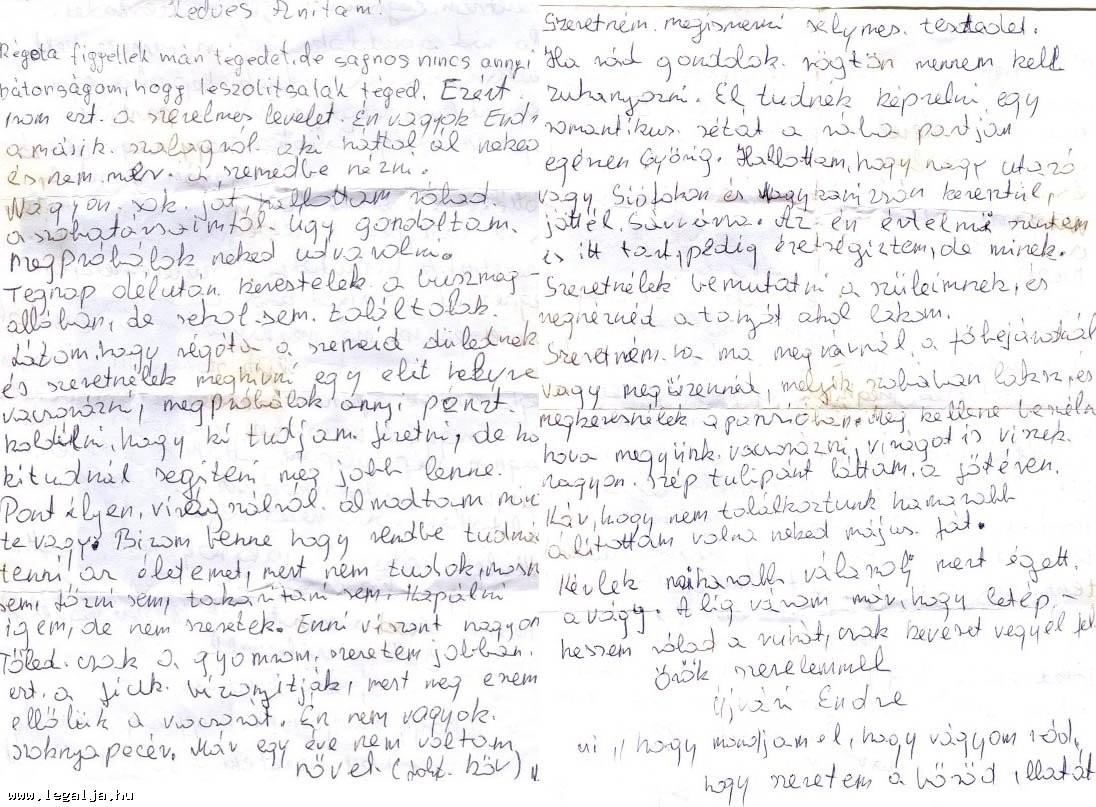 Kedves Anitám!
Régóta figyellek mán tégedet, de sajnos nincs annyi
bátorságom, hogy leszolitsalak téged. Ezért
irom ezt a szerelmes levelet. Én vagyok Endre
a másik szalagról aki háttal ál neked
és nem mer a szemedbe nézni.
Nagyon sok ját hallottam rólad
a szobatársaimtól. Úgy gondoltam,
megpróbálok neked udvarolni.
Tegnap délután kerestelek a buszmeg-
állóban, de sehol sem találtalak.
Látom, hogy régóta a szemeid dülednek
és szeretnélek meghívni egy elit helyre
vacsorázni, megpróbálok annyi pénzt
koldulni, hogy ki tudjam fizetni, de ha
kitudnál segíteni még jobb lenne.
Pont ilyen, virágszálról álmodtam mint
te vagy. Bizom benne hogy rendbe tudnád
tenni az életemet, mert nem tudok, mosni
sem, főzni sem, takarítani sem. Kapálni
igen, de nem szeretek. Enni viszont nagyon
Tőled csak a gyomrom szeretem jobban.
ezt a fiúk bizonyitják, mert még enem
ellőlük a vacsorát. Én nem vagyok
szoknyapecér. Már egy éve nem vóltam
nővel.
Szeretném megismerni selymes testedet.
Ha rád gondolok rögtön mennem kell
zuhanyozni. El tudnék képzelni egy
romantikus sétát a rába partján
egénen Győrig. Hallottam, hogy nagy utazó
vagy Siófokon és Nagykanizsán keresztül
jöttél Sárvárra. Az én értelmi szintem
is itt tart, pedig éretségiztem, de minek.
Szeretnélek bemutatni a szüleimnek, és
megnéznéd a tanyát ahol lakom.
Szeretném ha ma megvárnál a főbejáratnál
vagy megüzennéd, melyik szobában laksz, és
megkeresnélek a panzióban. Meg kellene beszélni
hova megyünk vacsorázni, virágot is viszek
nagyon szép tulipánt láttam a jótéren.
Kár, hogy nem találkoztunk hamarabb
álitottam volna neked május fát.
Kérlek mihamarabb válaszolj mert éget
a vágy. Alig várom már, hogy letép-
hessem rólad a ruhát, csak keveset vegyél fel
Örök szerelemmel
Ujvári Endre
ui „hogy mondjam el, hogy vágyom rád,
hogy szeretem a bőröd illatát
www.legalja.hu